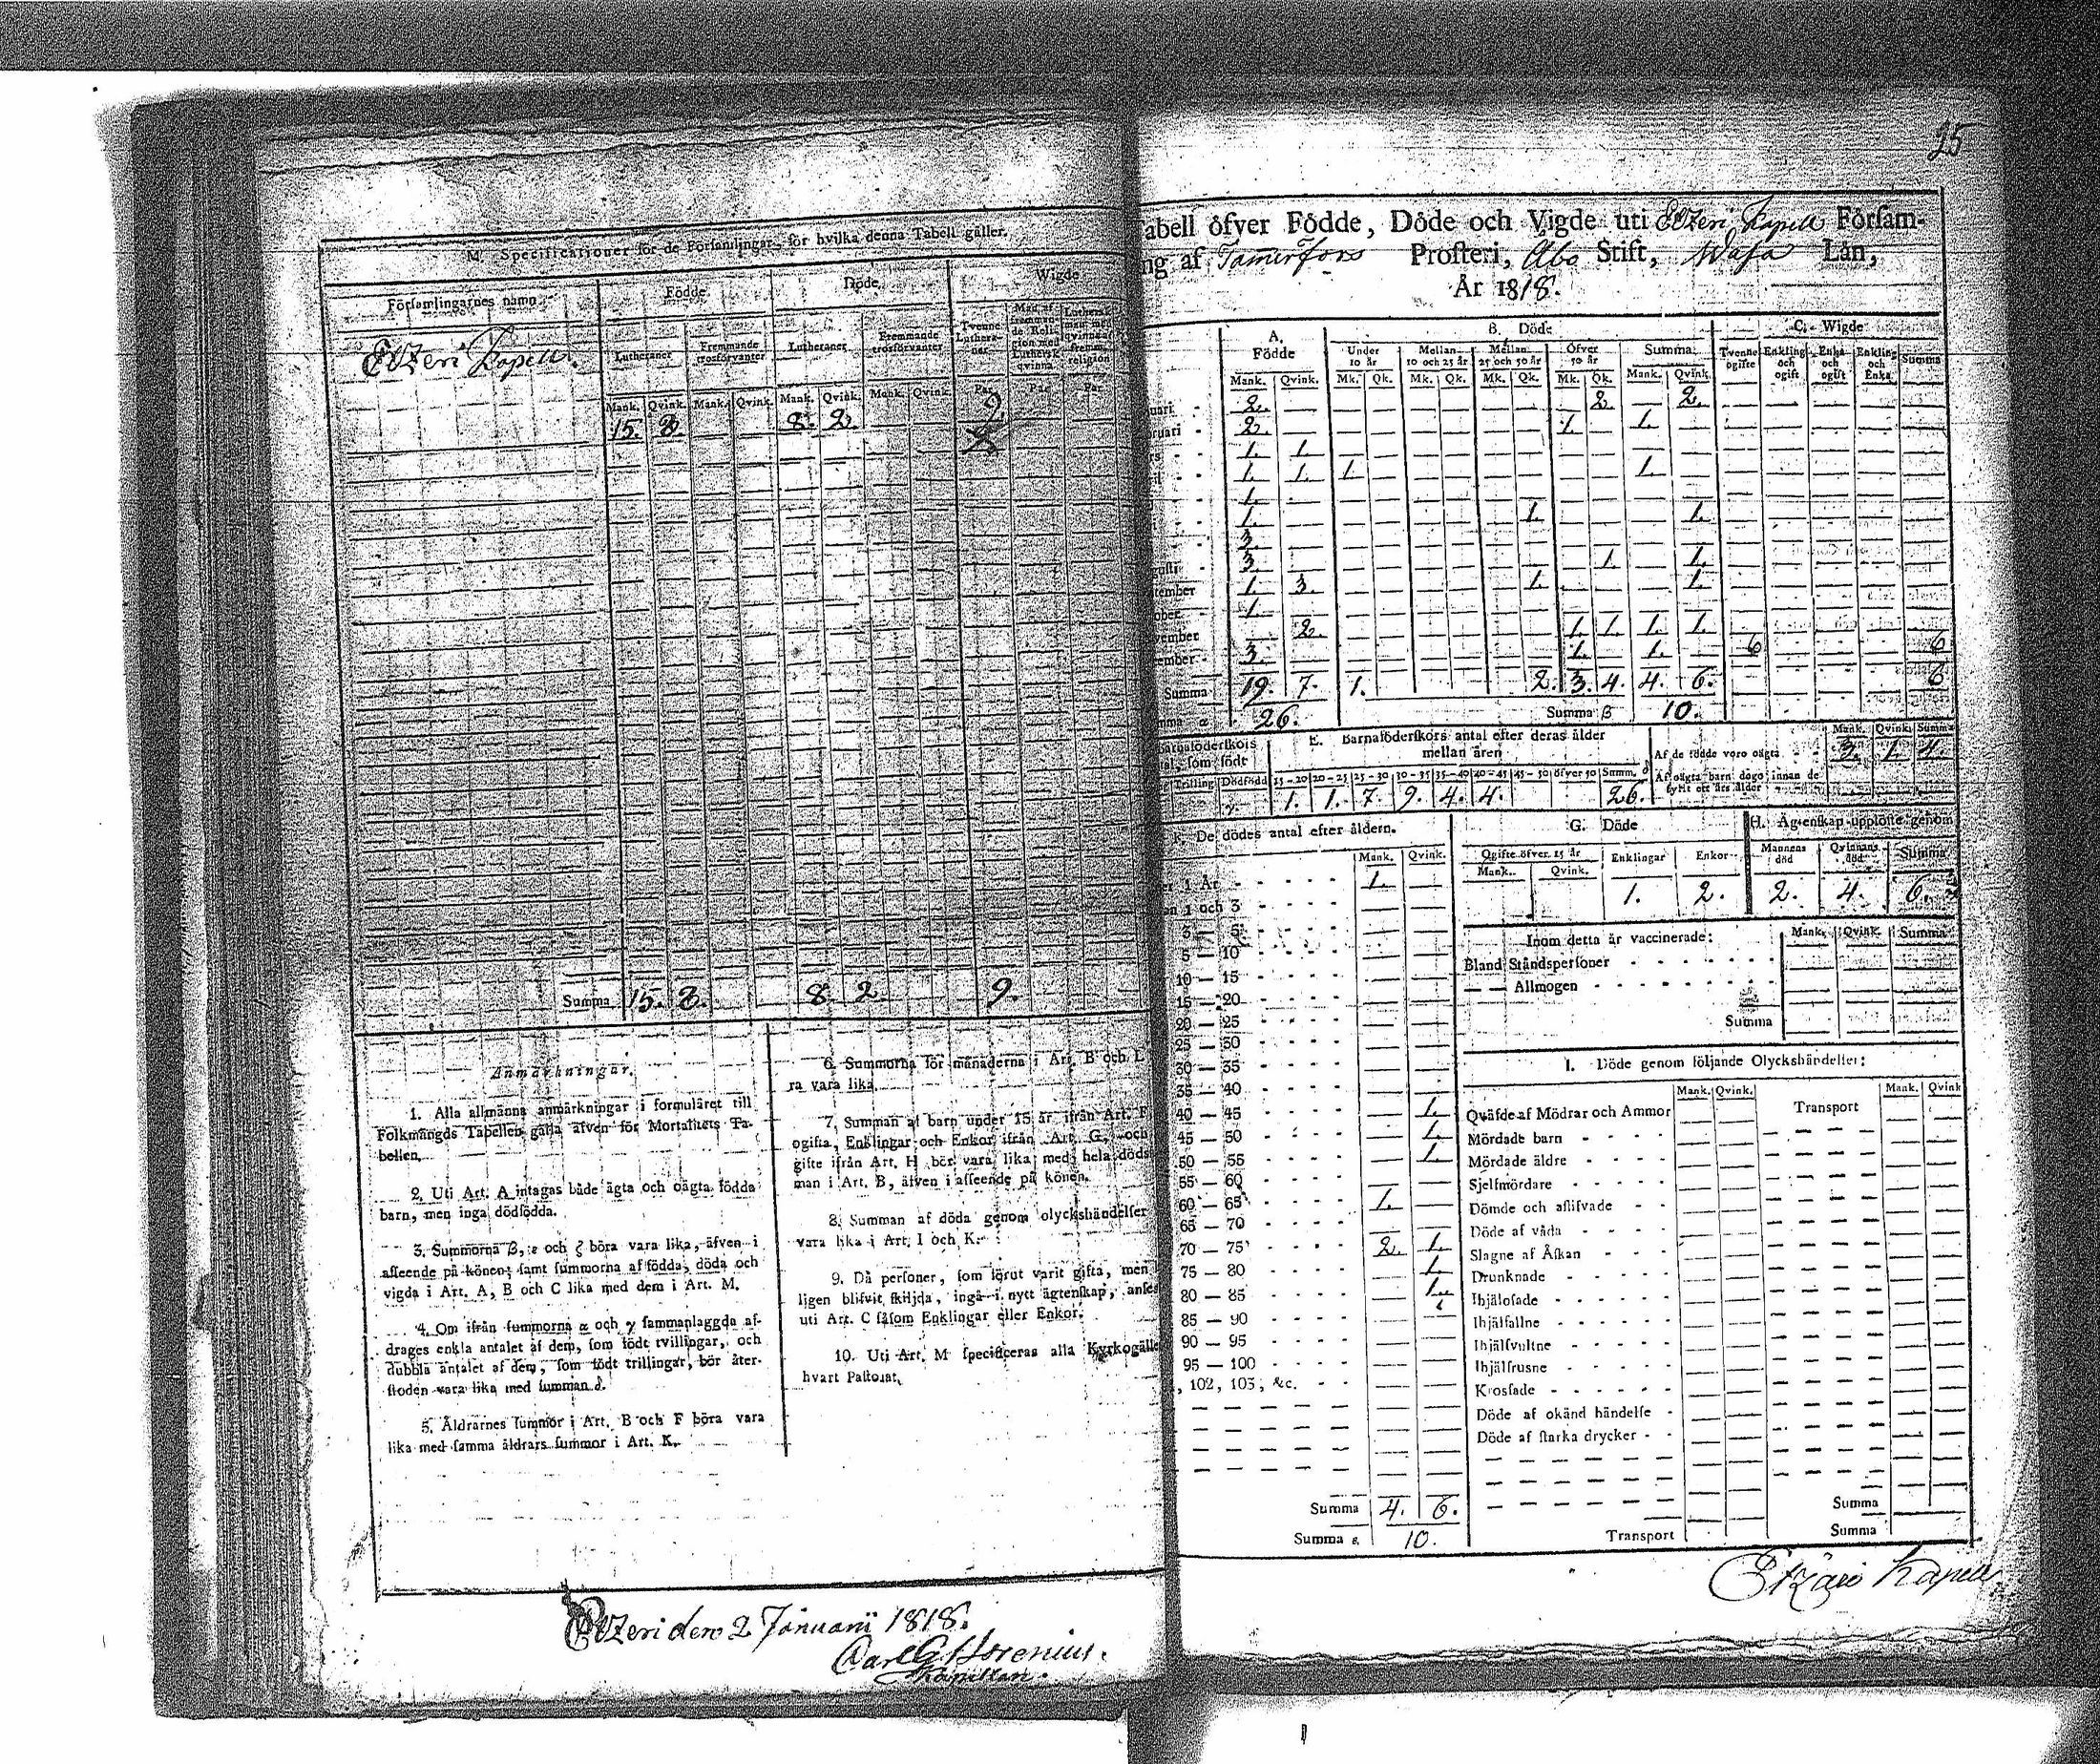 M. Specificationer för de Församlingar, för hvilka denna Tabell gäller.
Församlingarnes namn Födde Döde Wigde
Lutheraner Fremmande trosförvanter Lutheraner Fremmande trosförvanter Tvenne Lutheraner Man af fremmande Religion med Luthersk qvinna Luthersk man med qvinna af fremm. religion
Mank. Qvink. Mank. Qvink. Mank. Qvink. Mank. Qvink. Par Par Par
Etzeri Kapell.
15. 8 8. 2 9
Summa 15. 8. 8. 2. 9.
Anmärkningar.
1. Alla allmänna anmärkningar i formuläret till
Folkmängds Tabellen gälla äfven för Mortalitets Ta-
bellen.
2. Uti Art. A intagas både ägta och oägta födda
barn, men inga dödfödda.
3. Summorna β, ε och ζ böra vara lika, äfven i
afseende på könen; samt summorna af födda, döda och
vigda i Art. A, B och C lika med dem i Art. M.
4. Om ifrån summorna α och γ sammanlaggda af-
drages enkla antalet af dem, som födt tvillingar, och
dubbla antalet af dem, som födt trillingar, bör åter-
stoden vara lika med summan δ.
5. Åldrarnes summor i Art. B och F böra vara
lika med samma åldrars summor i Art. K.
6. Summorna för månaderna i Art. B och L
ra vara lika.
7. Summan af barn under 15 år ifrån Art. F,
ogifta, Enklingar och Enkor ifrån Art. G, och
gifte ifrån Art. H bör vara lika med hela döds
man i Art. B, äfven i afseende på könen.
8. Summan af döda genom olyckshändelser
vara lika i Art. I och K.
9. Då personer, som förut varit gifta, men
ligen blifvit skiljda, ingå i nytt ägtenskap, anses
uti Art. C såsom Enklingar eller Enkor.
10. Uti Art. M specificeras alla Kyrkogälle
hvart Pastorat.
Etzeri den 2 Januarii 1818.
Carl G Florenius.
Kapellan.
25
abell öfver Födde, Döde och Vigde uti Etzeri Kapell Församl-
ng af Tamerfors Prosteri, Åbo Stift, Wasa Län,
År 1818.
A. Födde B. Döde C. Wigde
Under 10 år Mellan 10 och 25 år Mellan 25 och 50 år Öfver 50 år Summa Tvenne ogifte Enkling och ogift Enka och ogift Enkling och Enka Summa
Mank. Qvink. Mk. Qk. Mk. Qk. Mk. Qk. Mk. Qk. Mank. Qvink.
uari 2. 2 2.
bruari 2. 1. 1.
rs 1. 1.
il 1. 1. 1. 1.
1.
1. 1. 1.
3.
gusti 3. 1. 1.
tember 1. 3. 1. 1.
ober 1.
vember 2. 1. 1. 1. 1.
cember 3. 1. 1. 6 6
Summa 19. 7. 1. 2. 3. 4. 4. 6. 6
mma α 26. Summa β 10.
Barnaföderskors
tal, som födt
Trilling Dödfödd
E. Barnaföderskors antal efter deras ålder
mellan åren
15-20 20-25 25-30 30-35 35-40 40-45 45-50 öfver 50 Summ. δ
1. 1. 7. 9. 4. 4. 26.
Mank. Qvink. Summa
Af de födde voro oägta 3. 1. 4.
Af oägta barn dogo innan de
fyllt ett års ålder
F. De dödes antal efter åldern.
Mank. Qvink.
er 1 År 1.
an 1 och 3
3 — 5
5 — 10
10 — 15
15 — 20
20 — 25
25 — 30
30 — 35
35 — 40
40 — 45 1.
45 — 50 1.
50 — 55 1.
55 — 60
60 — 65 1.
65 — 70
70 — 75 2. 1.
75 — 80 1.
80 — 85 1.
85 — 90
90 — 95
95 — 100
, 102, 103, &c.
Summa 4. 6.
Summa ε. 10.
G. Döde
Ogifte öfver 15 år Enklingar Enkor
Mank. Qvink.
1. 2.
H. Ägtenskap upplöste genom
Mannens död Qvinnans död Summa
2. 4. 6.
Inom detta år vaccinerade: Mank. Qvink. Summa
Bland Ståndspersoner
— — Allmogen
Summa
I. Döde genom följande Olyckshändelser:
Mank. Qvink. Mank. Qvink
Qväfde af Mödrar och Ammor Transport
Mördade barn
Mördade äldre
Sjelfmördare
Dömde och aflifvade
Döde af våda
Slagne af Åskan
Drunknade
Ihjälosade
Ihjälfallne
Ihjälsvultne
Ihjälfrusne
Krossade
Döde af okänd händelse
Döde af starka drycker
Summa
Transport Summa
Etzäri Kapell